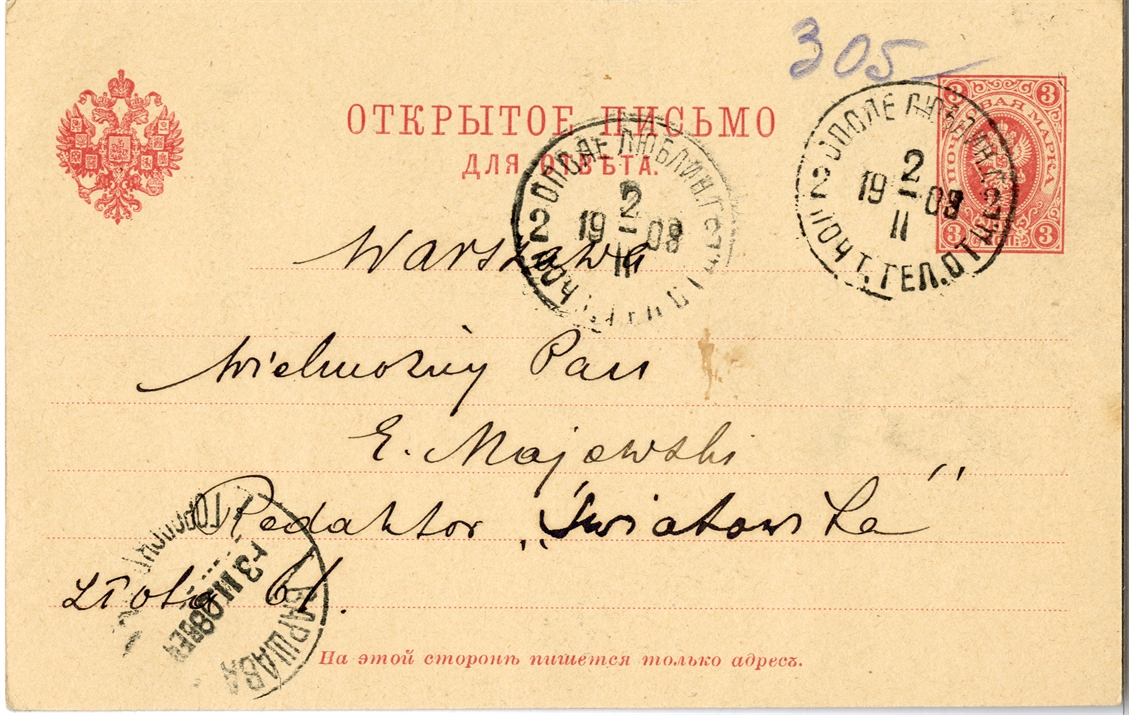 305
ОТКРЫТОЕ ПИСЬМО
ДЛЯ ОТВѢТА.
3 3
МАРКА
3 3
ОПОЛЕ ЛЮБЛИН.Г.
2 2
2
19 — 08
II
ПОЧТ.ТЕЛ.ОТД.
ОПОЛЕ ЛЮБЛИН.Г.
2 2
2
19 — 08
II
ПОЧТ.ТЕЛ.ОТД.
Warszawa
Wielmożny Pan
E. Majewski
Redaktor „Światowita"
Złota 61.
ВАРШАВА
3 II 08
На этой сторонѣ пишется только адресъ.